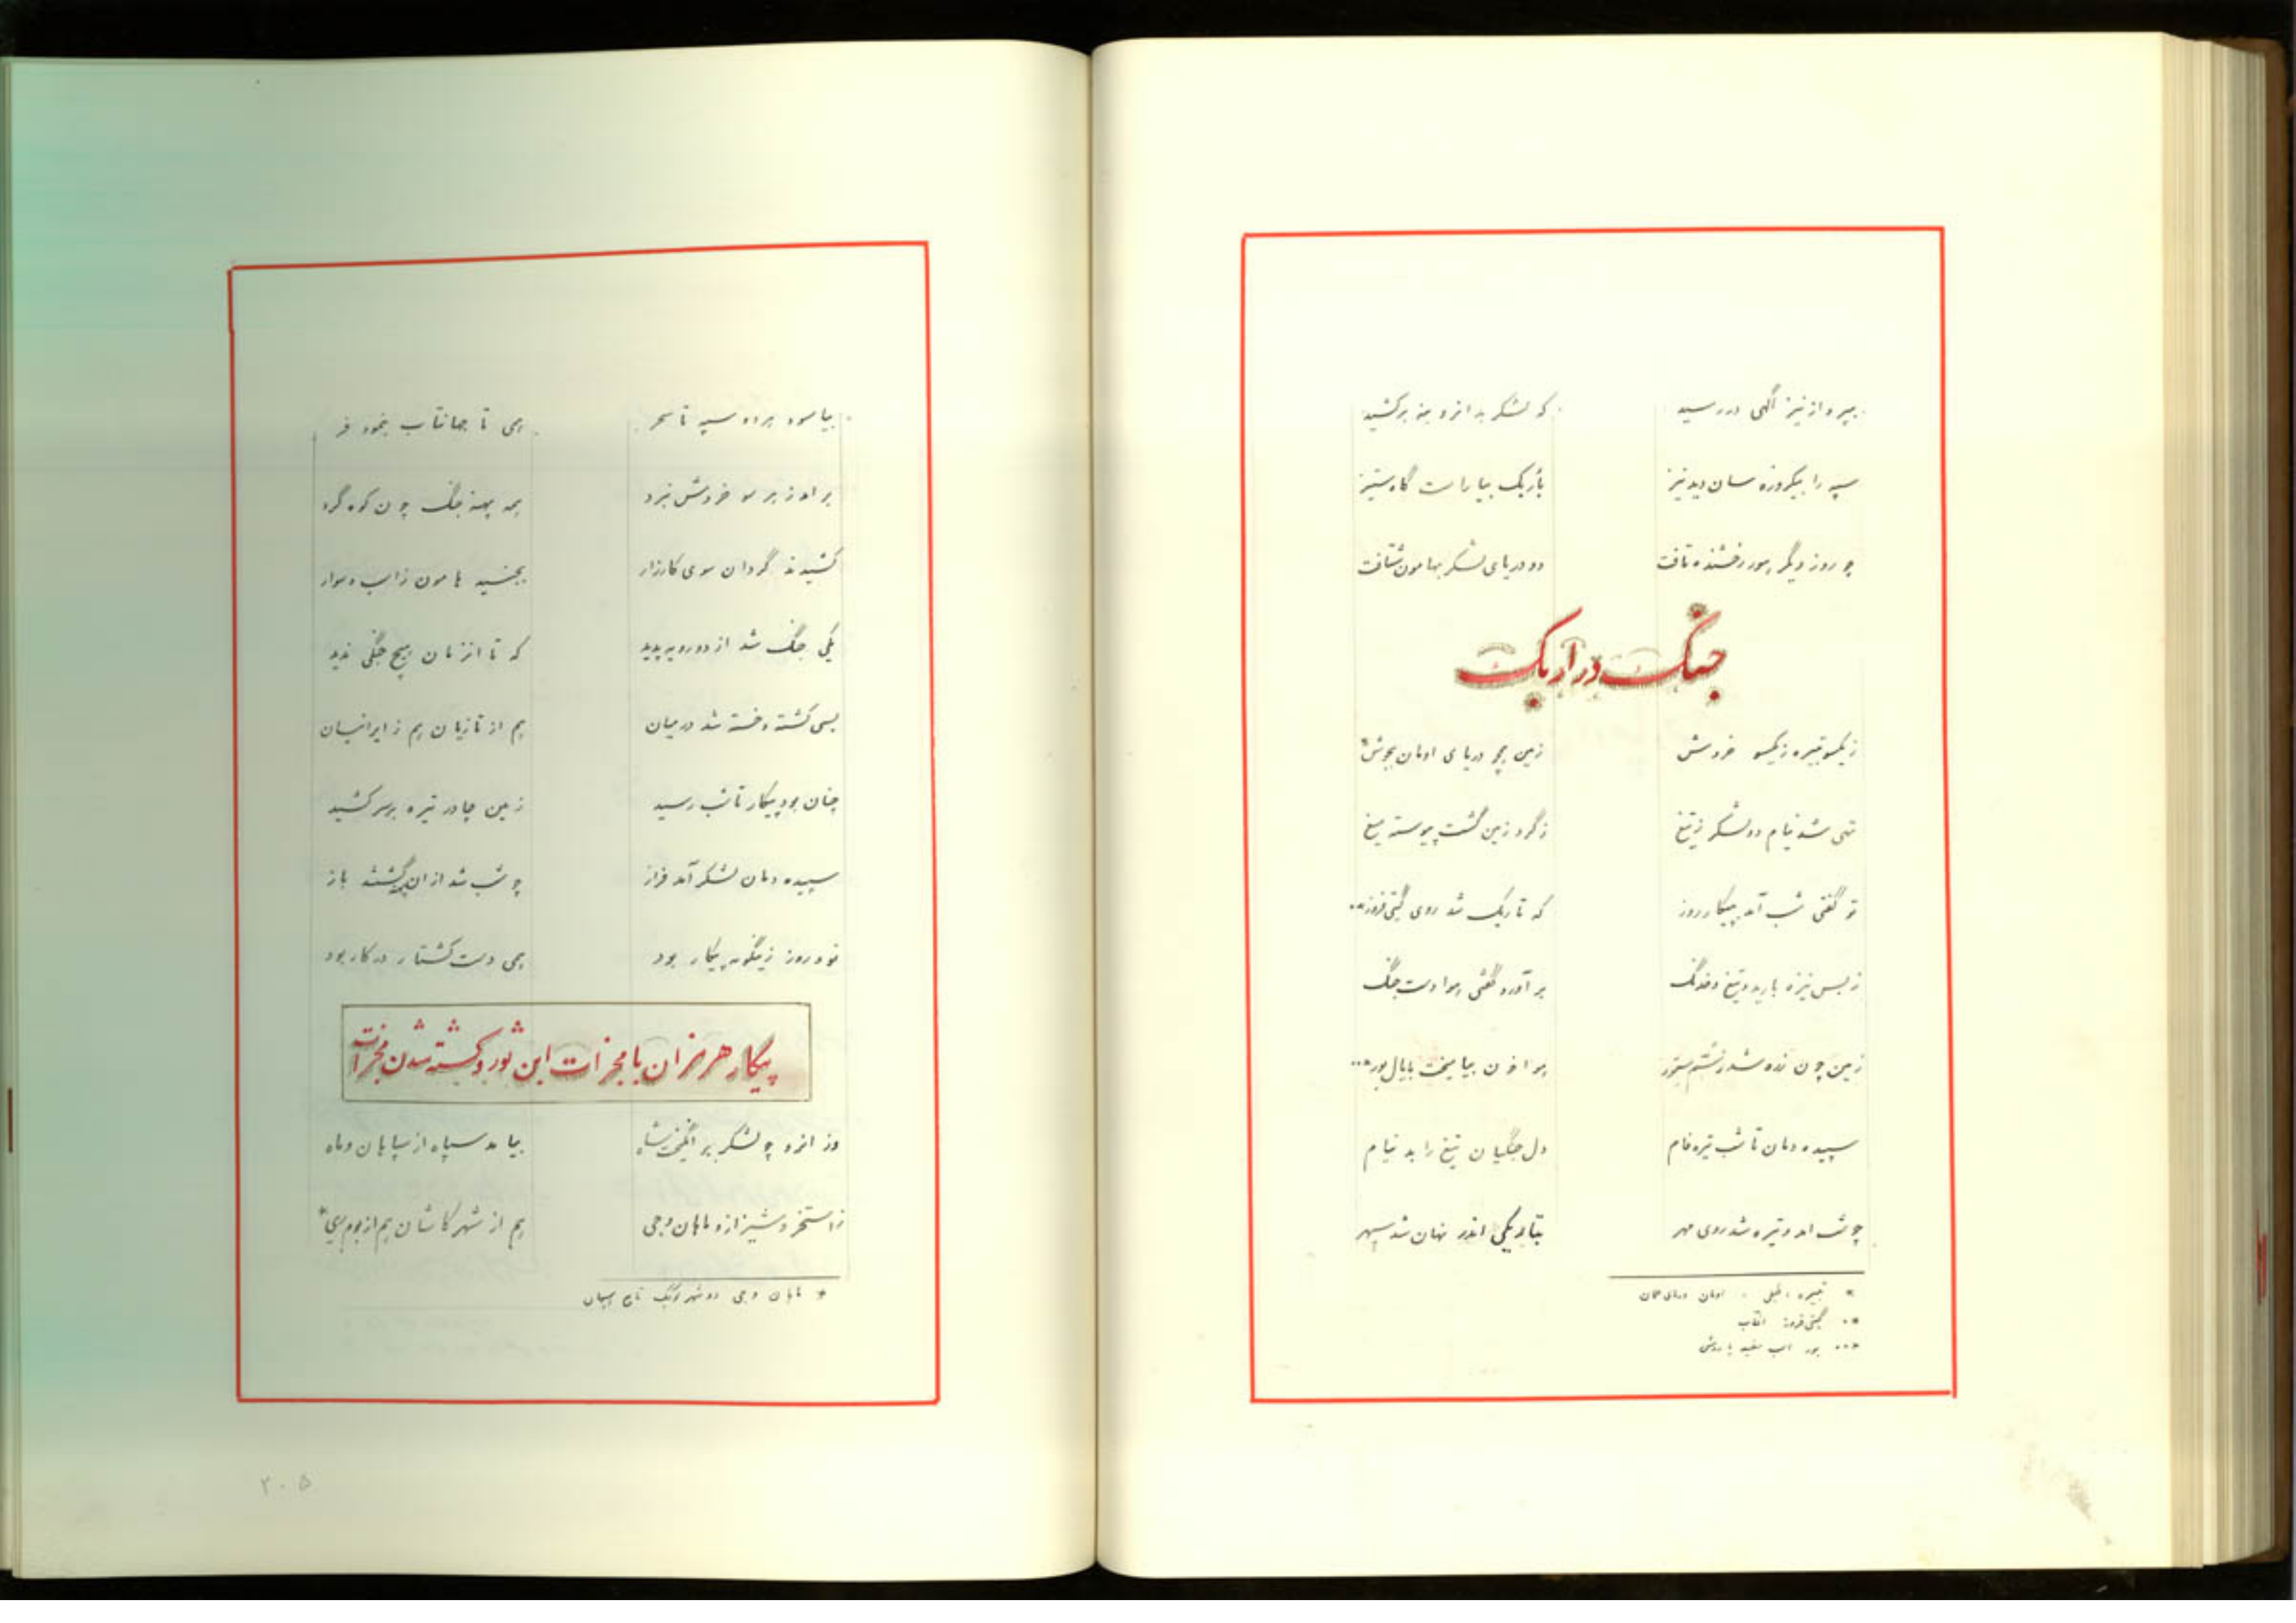 بپیروز نیز آگهی در رسید که لشکر بدانزو بنه برکشید
سپه را بیکروزه سان دید نیز باربک بیاراست گاه ستیز
چو روز دگر هور رخشنده تافت دو دریای لشکر بهامون شتافت
جنگ در اربک
زیکسو تبیره زیکسو خروش زمین چو دریای اومان بجوش*
تهی شد نیام دو لشکر ز تیغ ز گرد زمین گشت پیوسته میغ
تو گفتی شب آمد پیکار روز که تاریک شد روی گیتی فروز**
ز بس نیزه بارید و تیغ و خدنگ بر آورد گفتی هوا دست جنگ
زمین چون زده شد ز سم ستور هوا خون بیامیخت با یال بور***
سپیده دمان تا شب تیره فام دل جنگیان تیغ را بد نیام
چو شب امد و تیره شد روی مهر بتاریکی اندر نهان شد سپهر
* تبیره : طبل . اومان دریای عمان
** گیتی فروز: افتاب
*** بور اسب سفید
بیاسود هر دو سپه تا سحر همی تا جهانتاب بنمود فر
بر امد ز هر سو خروش نبرد همه پهنه جنگ چون کوه گرد
کشیدند گردان سوی کارزار بجنبید هامون ز اسب و سوار
یکی جنگ شد از دو رویه پدید که تا انزمان هیچ جنگی ندید
بسی کشته و خسته شد در میان هم از تازیان هم ز ایرانیان
چنان بود پیکار تا شب رسید زمین چادر تیره بر سر کشید
سپیده دمان لشکر آمد فراز چو شب شد از ان گشتند باز
دو روز زینگونه پیکار بود همی دست کشتار در کار بود
پیکار هرمزان با مجزات ابن ثور و کشته شدن مجزات
وز انرو چو لشکر بر انگیخت شاه بیامد سپاه از سپاهان و ماه
ز استخر و شیراز و ماهان و جی هم از شهر کاشان هم از بوم ری*
* ماهان و جی دو شهر
۲۰۵